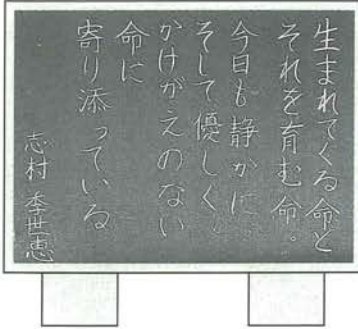 生まれてくる命と
それを育む命。
今日も静かに
そして優しく、
かけがえのない
命に
寄り添っている
志村 季世恵